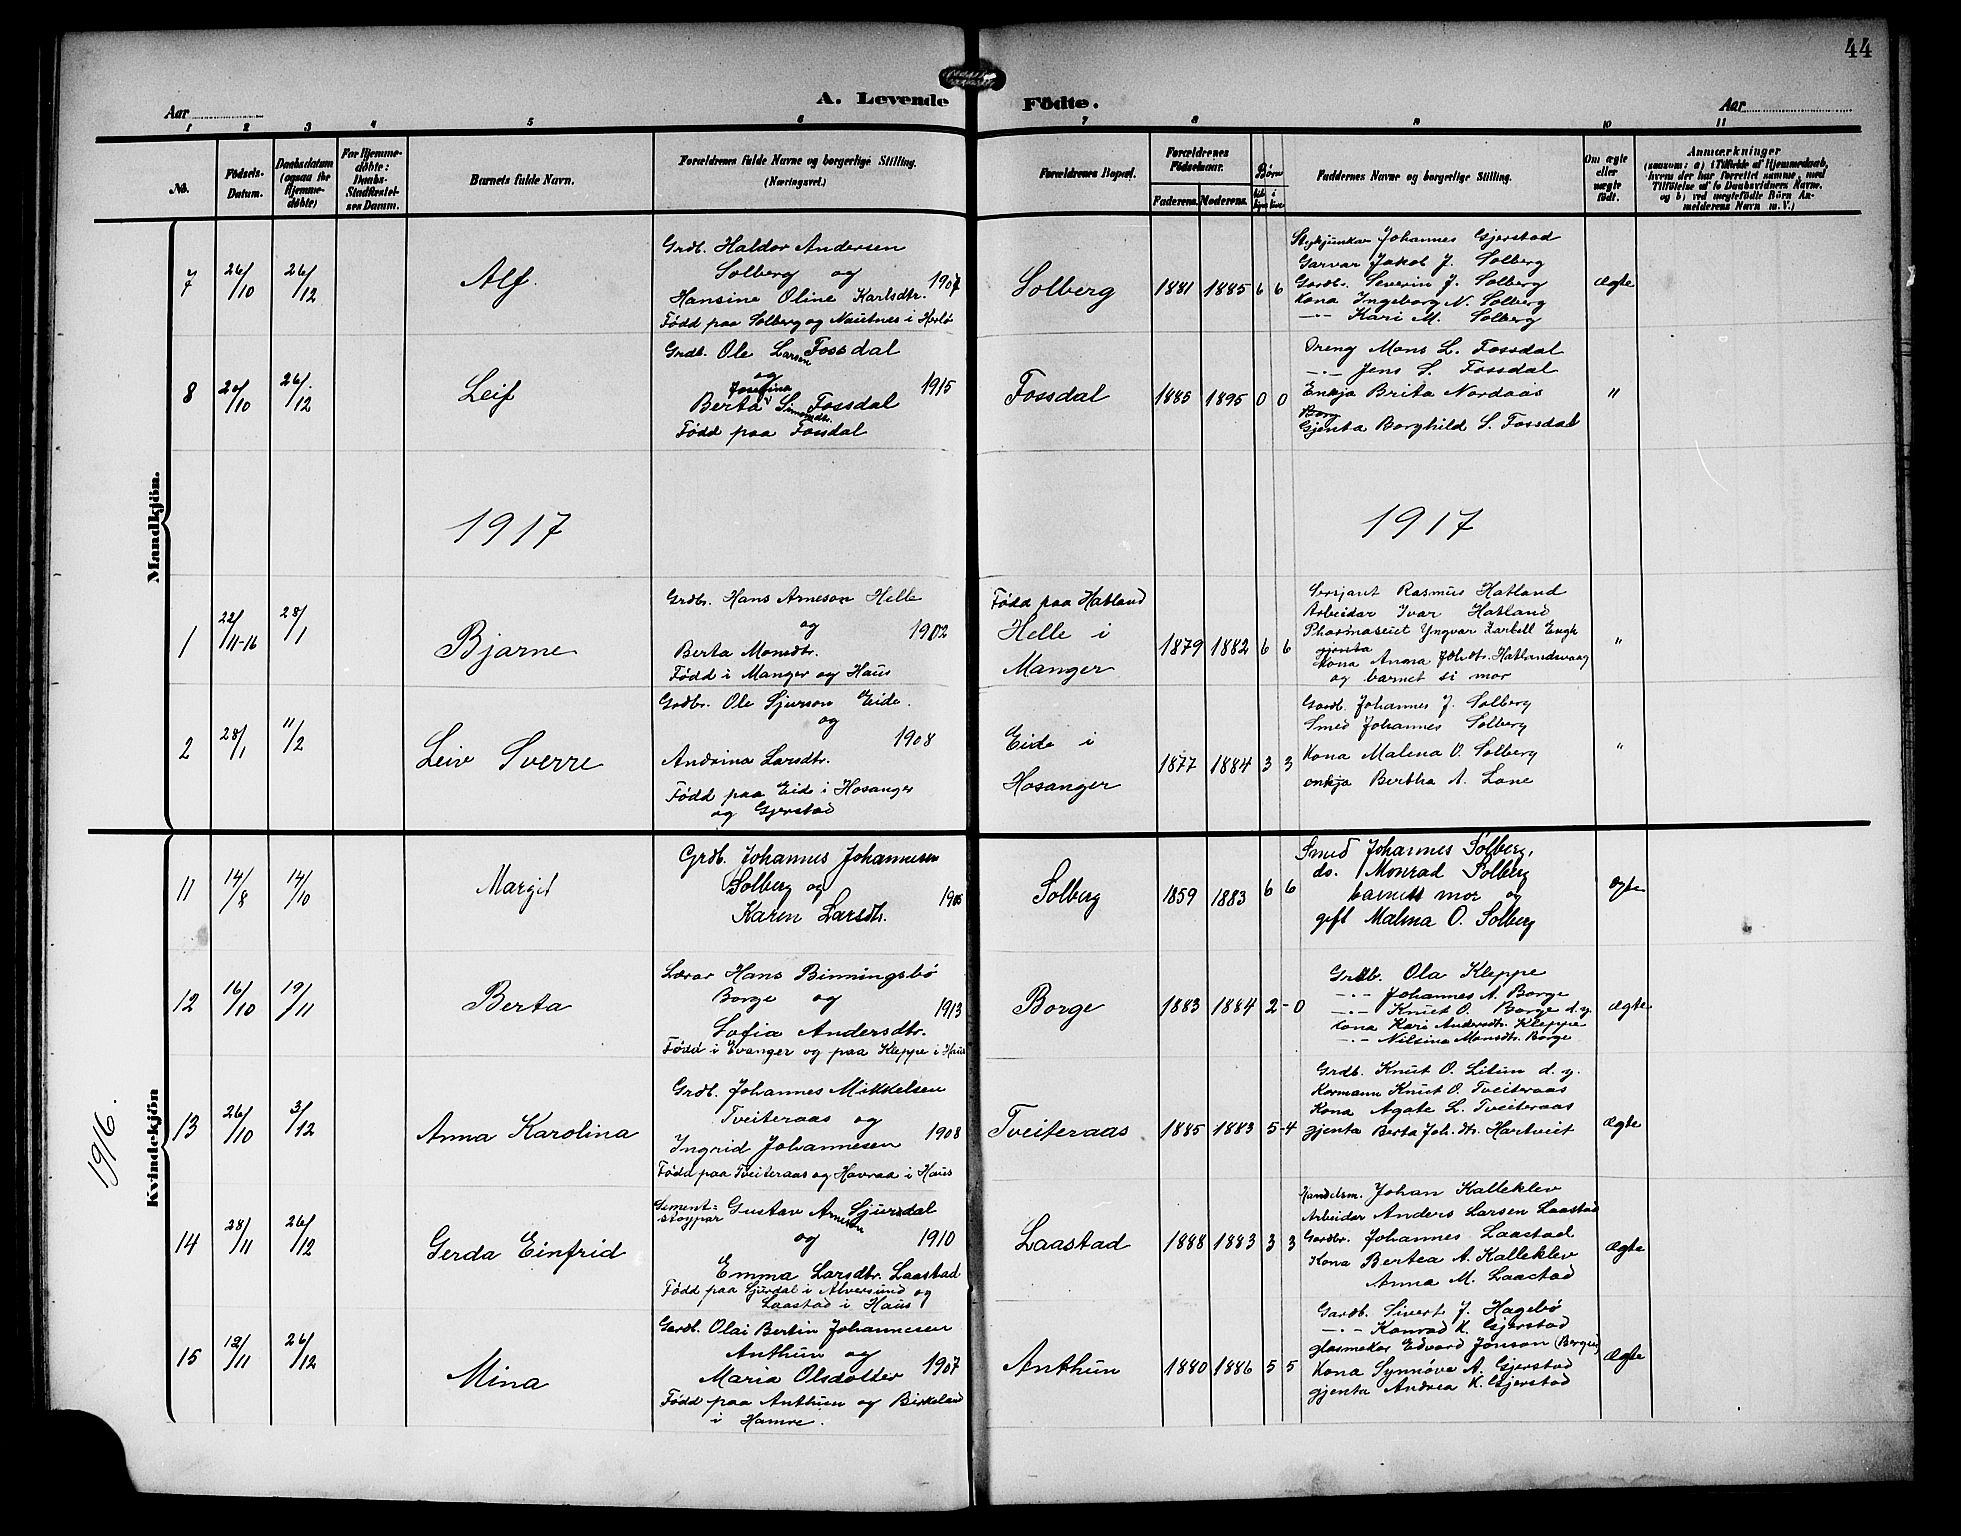 44
A. Levende Födte.
Aar
Aar
1 2 3 4 5 6 7 8 9 10 11
No.
Födsels-
Datum.
Daabsdatum
(ogsaa for
Hjemme-
døbte)
For Hjemme-
døbte:
Daabs-
Stadfæstel-
ses Datum.
Barnets fulde Navn.
Forældrenes fulde Navne og borgerlige Stilling.
(Næringsvei.)
Forældrenes Bopæl.
Forældrenes
Födselsaar.
Faderens. Moderens.
Børn
i live
Faddernes Navne og borgerlige Stilling.
Om ægte
eller
uægte
født.
Anmærkninger
(saasom: a) i Tilfælde af Hjemmedaab,
hvem der har forrettet samme, med
Tilføielse af to Daabsvidners Navne,
og b) ved uægtefödte Börn An-
melderens Navn m. V.)
Mandkjön.
7 26/10 26/12 Alf.
Grdb. Haldor Andersen
Solberg og 1907
Hansine Oline Karlsdtr.
Fødd paa Solberg og Nautnes i Herlø
Solberg 1881 1885 6 6
Johannes Gjerstad
Garvar Jakob J. Solberg
Gardbr. Severin J. Solberg
Kona Ingeborg N. Solberg
-"- Kari M. Solberg
Ægte
8 20/10 26/12 Leif
Grdb. Ole Larsen Fossdal
og 1915
Berta Josefina Simonsdtr. Fossdal
Fødd paa Fossdal
Fossdal 1885 1895 0 0
Dreng Mons L. Fossdal
-"- Jens S. Fossdal
Enkja Brita Nordaas
Borg
Gjenta Borghild S. Fossdal
"
1917
1917
1 22/11-16 28/1 Bjarne
Grdbr. Hans Arneson Helle
og 1902
Berta Monsdtr.
Fødd i Manger og Haus
Fødd paa Hatland
Helle i
Manger
1879 1882 6 6
Serjant Rasmus Hatland
Arbeidar Ivar Hatland
Pharmaseiet Yngvar Zarbell Engh
gjenta
Kona Anna Joh.dtr. Hatlandsvaag
og barnet si mor
"
2 28/1 11/2 Leiv Sverre
Grdbr. Ole Sjurson Eide.
og 1908
Andrina Larsdtr.
Fødd paa Eide i Hosanger
og Gjerstad
Eide i
Hosanger
1877 1884 3 3
Gardb. Johannes J. Solberg
Smed Johannes Solberg
Kona Malena O. Solberg
enkja Bertha A. Lone
"
Kvindekjön
1916.
11 14/8 14/10 Margit
Grdb. Johannes Johannesen
Solberg og
Karen Larsdtr.
Solberg 1859 1883 6 6
Smed Johannes Solberg,
ds. Monrad Solberg
barnets mor og
gift Malena O. Solberg
ægte
12 16/10 19/11 Berta
Lærar Hans Binningsbø
Borge og 1913
Sofia Andersdtr.
Fødd i Evanger og paa Kleppe i Haus
Borge 1883 1884 2-0
Grdb. Ola Kleppe
-"- Johannes A. Borge
-"- Knut O. Borge d.y.
Kona Kari Andersdtr. Kleppe
-"- Nilsina Monsdtr. Borge
Ægte
13 26/10 3/12 Anna Karolina
Grdb. Johannes Mikkelsen
Tveiteraas og 1908
Ingrid Johannesen
Fødd paa Tveiteraas og Havraa i Haus
Tveiteraas 1885 1883 5-4
Grdb. Knut O. Litun d.y.
Kormann Knut O. Tveiteraas
Kona Agate L. Tveiteraas
gjenta Berta Joh.dtr. Hartveit
Ægte
14 28/11 26/12 Gerda Einfrid
Sement-
støypar Gustav Arneson Sjursdal
og 1910
Emma Larsdtr. Laastad
Fødd paa Sjurdal i Alversund og
Laastad i Haus
Laastad 1888 1883 3 3
Handelsm. Johan Kalleklev
Arbeidar Anders Larsen Laastad
Gardbr. Johannes Laastad
Kona Bertea A. Kalleklev
Anna M. Laastad
Ægte
15 12/11 26/12 Mina
Gardb. Olai Bertin Johannesen
Anthun og 1907
Maria Olsdotter
Fødd paa Anthun og Birkeland
i Hamre.
Anthun 1880 1886 5 5
Gardb. Sivert J. Hagebø
-"- Konrad K. Gjerstad
glasmeker Edvard Jonson (Bergen)
Kona Synnøva A. Gjerstad
gjenta Andrea K. Gjerstad
Ægte